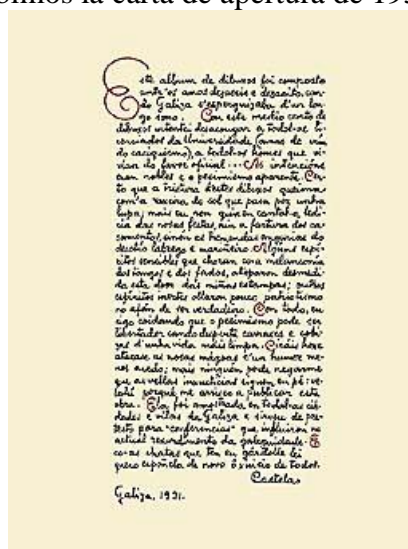 la carta de apertura de 19
Este album de dibuxos foi composto
antr'os anos dezaseis e dezaoito, can-
do Galiza s'esperguizaba d'un lon-
go sono. Con este medio cento de
dibuxos intentei desacougar a todol-os li-
cenciados da Universidade (amas de
do caciquismo), a todol-os homes que vi-
vían do favor oficial... As intencións
eran nobles e o pesimismo aparente. Cer-
to que a tristura d'estes dibuxos queima
com'a raxeira do sol que pasa por unha
lupa; mais eu non quixen cantal-a ledi-
cia das nosas festas, nin a fartura dos ca-
samentos, sinón as tremendas angurias do
decotío labrego e mariñeiro. Algúns espí-
ritos sensibles que choran coa melanconía
dos tangos e dos fados, atoparon desmedi-
da esta door das miñas estampas; outros
espíritos inertes ollaron pouco patriotismo
no afán de ser verdadeiro. Con todo, eu
sigo coidando que o pesimismo pode ser
libertador cando desperta carraxes e cobi-
zas d'unha vida máis limpa. Quizáis hoxe
atacase as nosas mágoas c'un humor me-
nos acedo; mais ninguén pode negarme
que as vellas inxusticias siguen en pé: ve-
lahí porqué me arrisco a publicar esta
obra. Ela foi amostrada en todal-as ci-
dades e vilas da Galiza e sirveu de pre-
testo para "conferencias" que influiron no
actual resurdimento da galeguidade. E
co-as chatas que ten eu gárdolle lei
quero espoñela de novo ô xuicio de todos.
Castelao
Galiza, 1931.